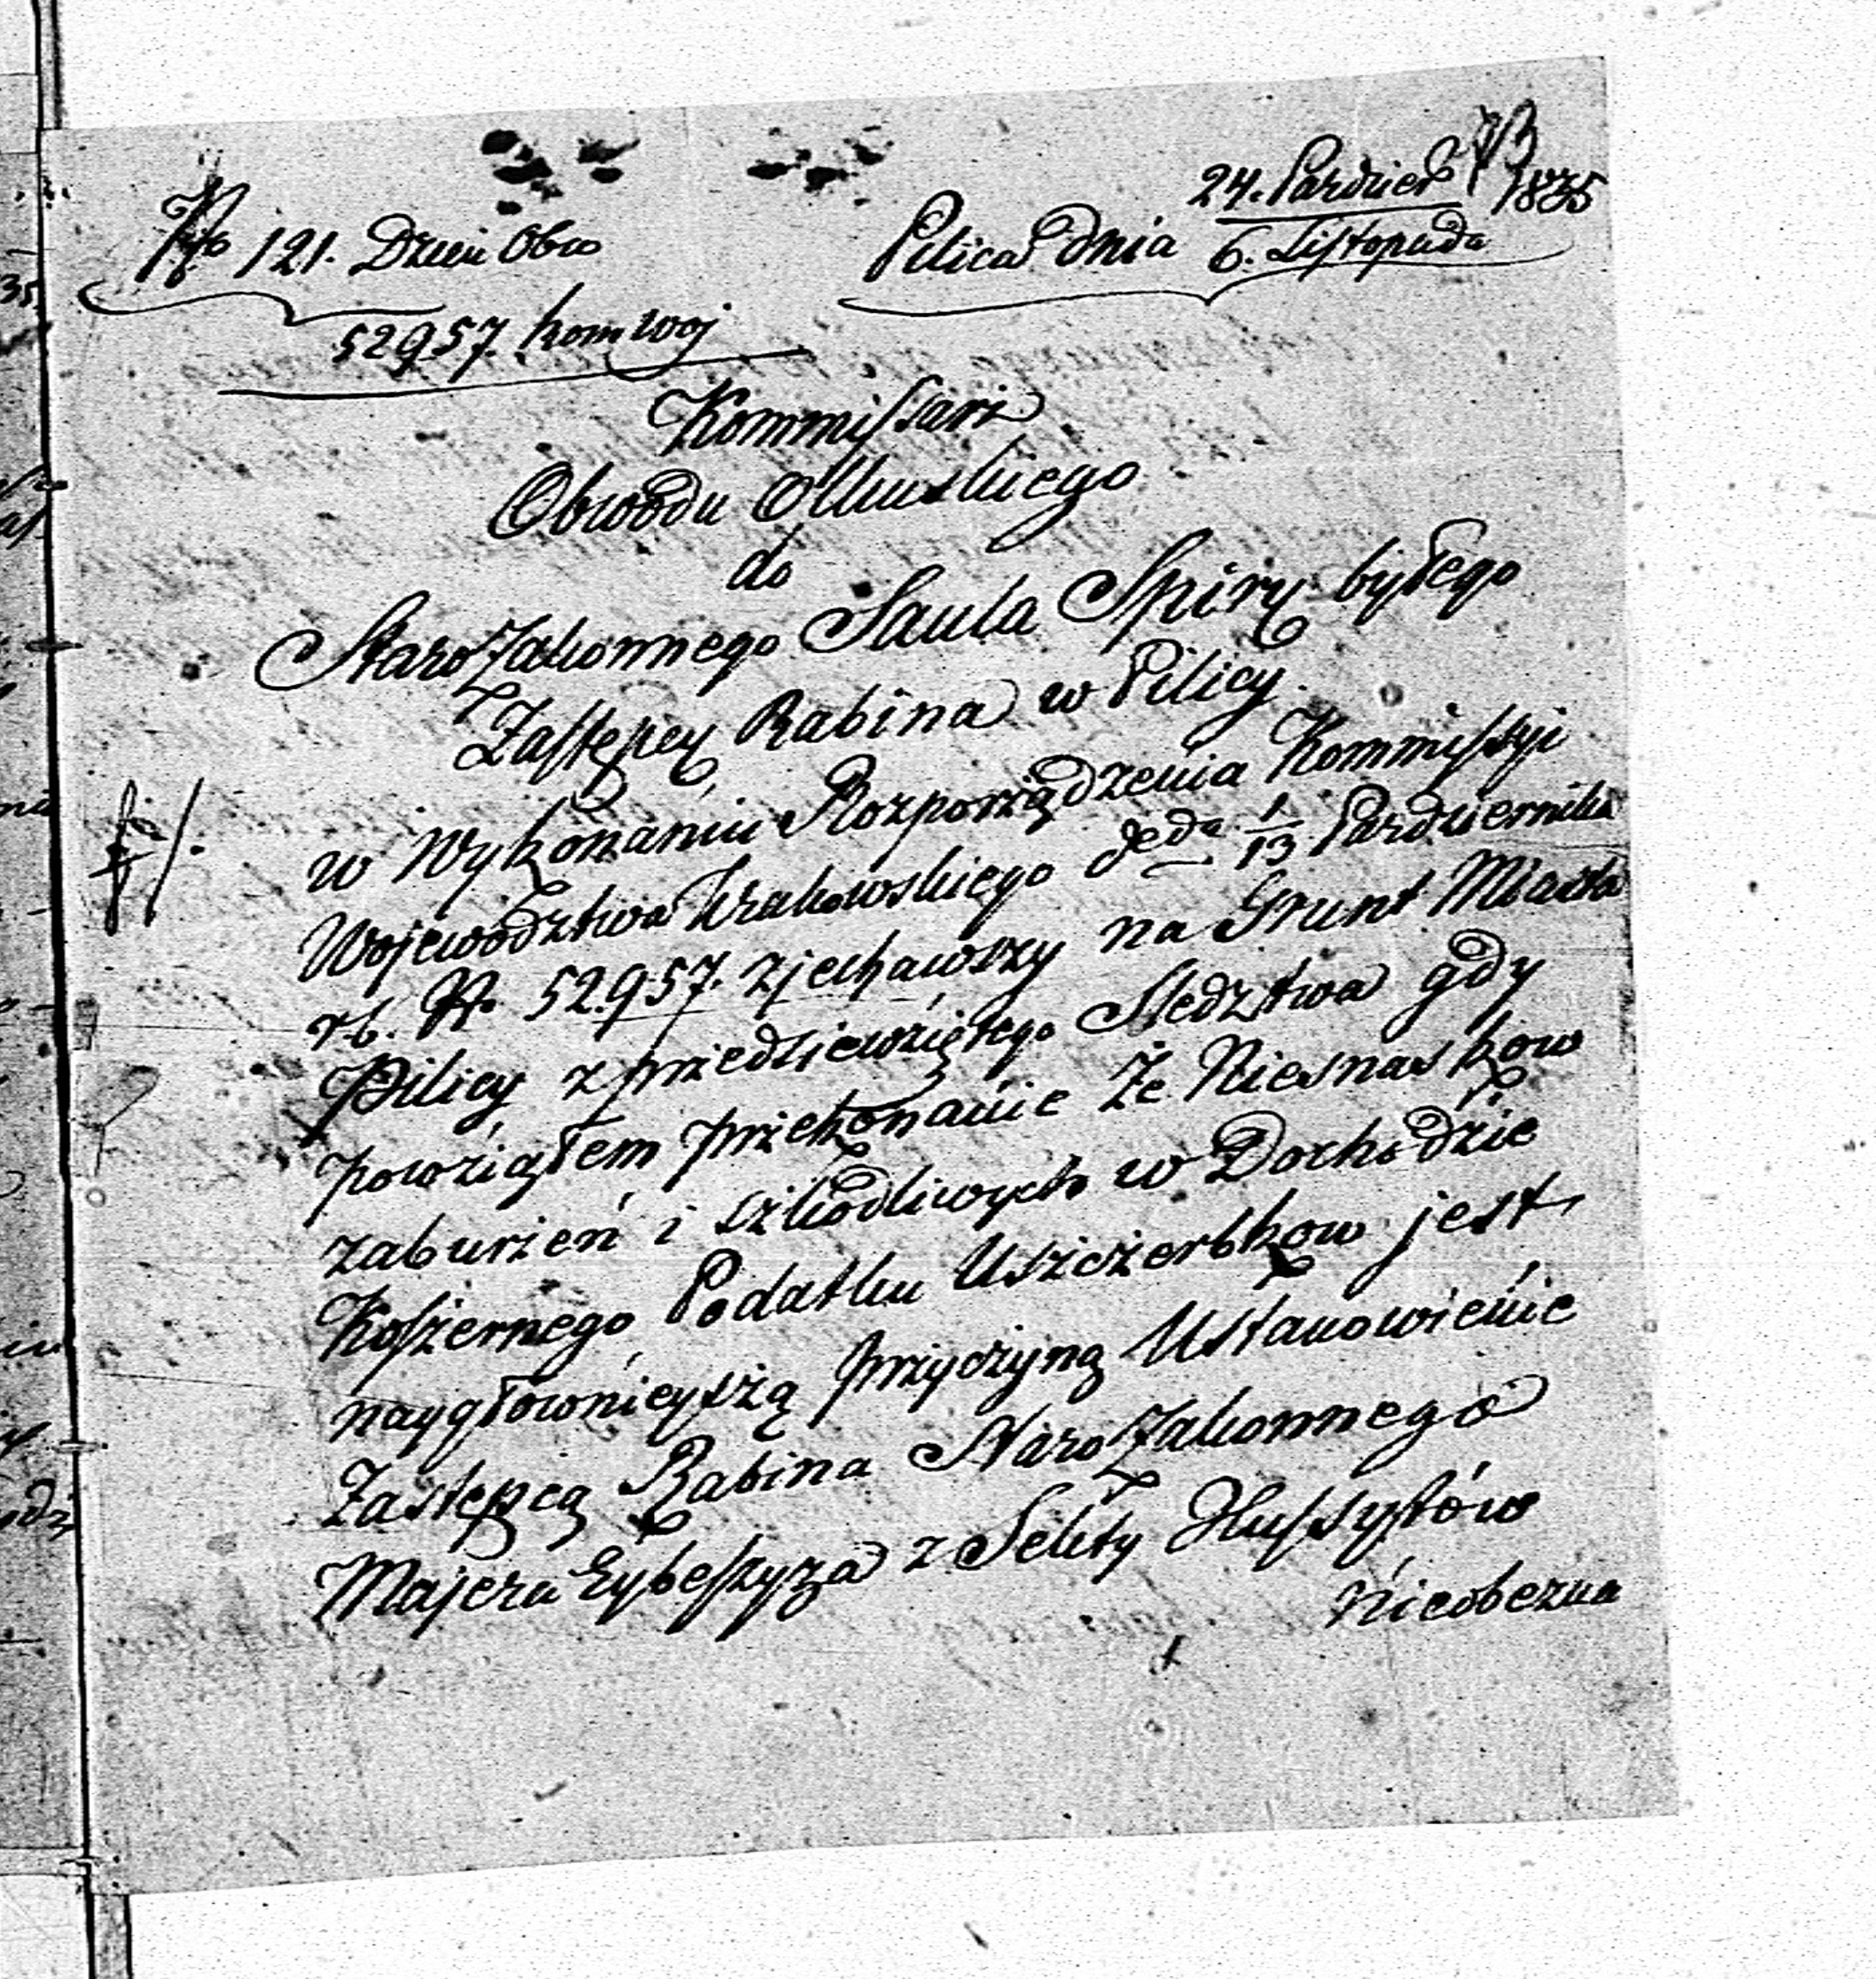 No 121. Dzien Obw
24. Pazdzier 1835
Pilica dnia 6. Listopada
52957. Kom Woj
Kommissarz
Obwodu Olkuskiego
do
Starozakonnego Saula Spiry byłego
Zastępcy Rabina w Pilicy.
w Wykonaniu Rozporządzenia Kommissyi
Województwa Krakowskiego de da 1/13 Pazdziernika
rb. No. 52957. zjechawszy na Grunt Miasta
Pilicy z przedsięwziętego Sledztwa gdy
powziąłem przekonanie że Niesnaskow
zaburzeń i szkodliwych w Dochodzie
Koszernego Podatku Uszczerbkow jest
naygłownieyszą przyczyną Ustanowienie
Zastępcą Rabina Starozakonnego
Majera Eybeszyza z Sekty Hussytów
Nieobezna